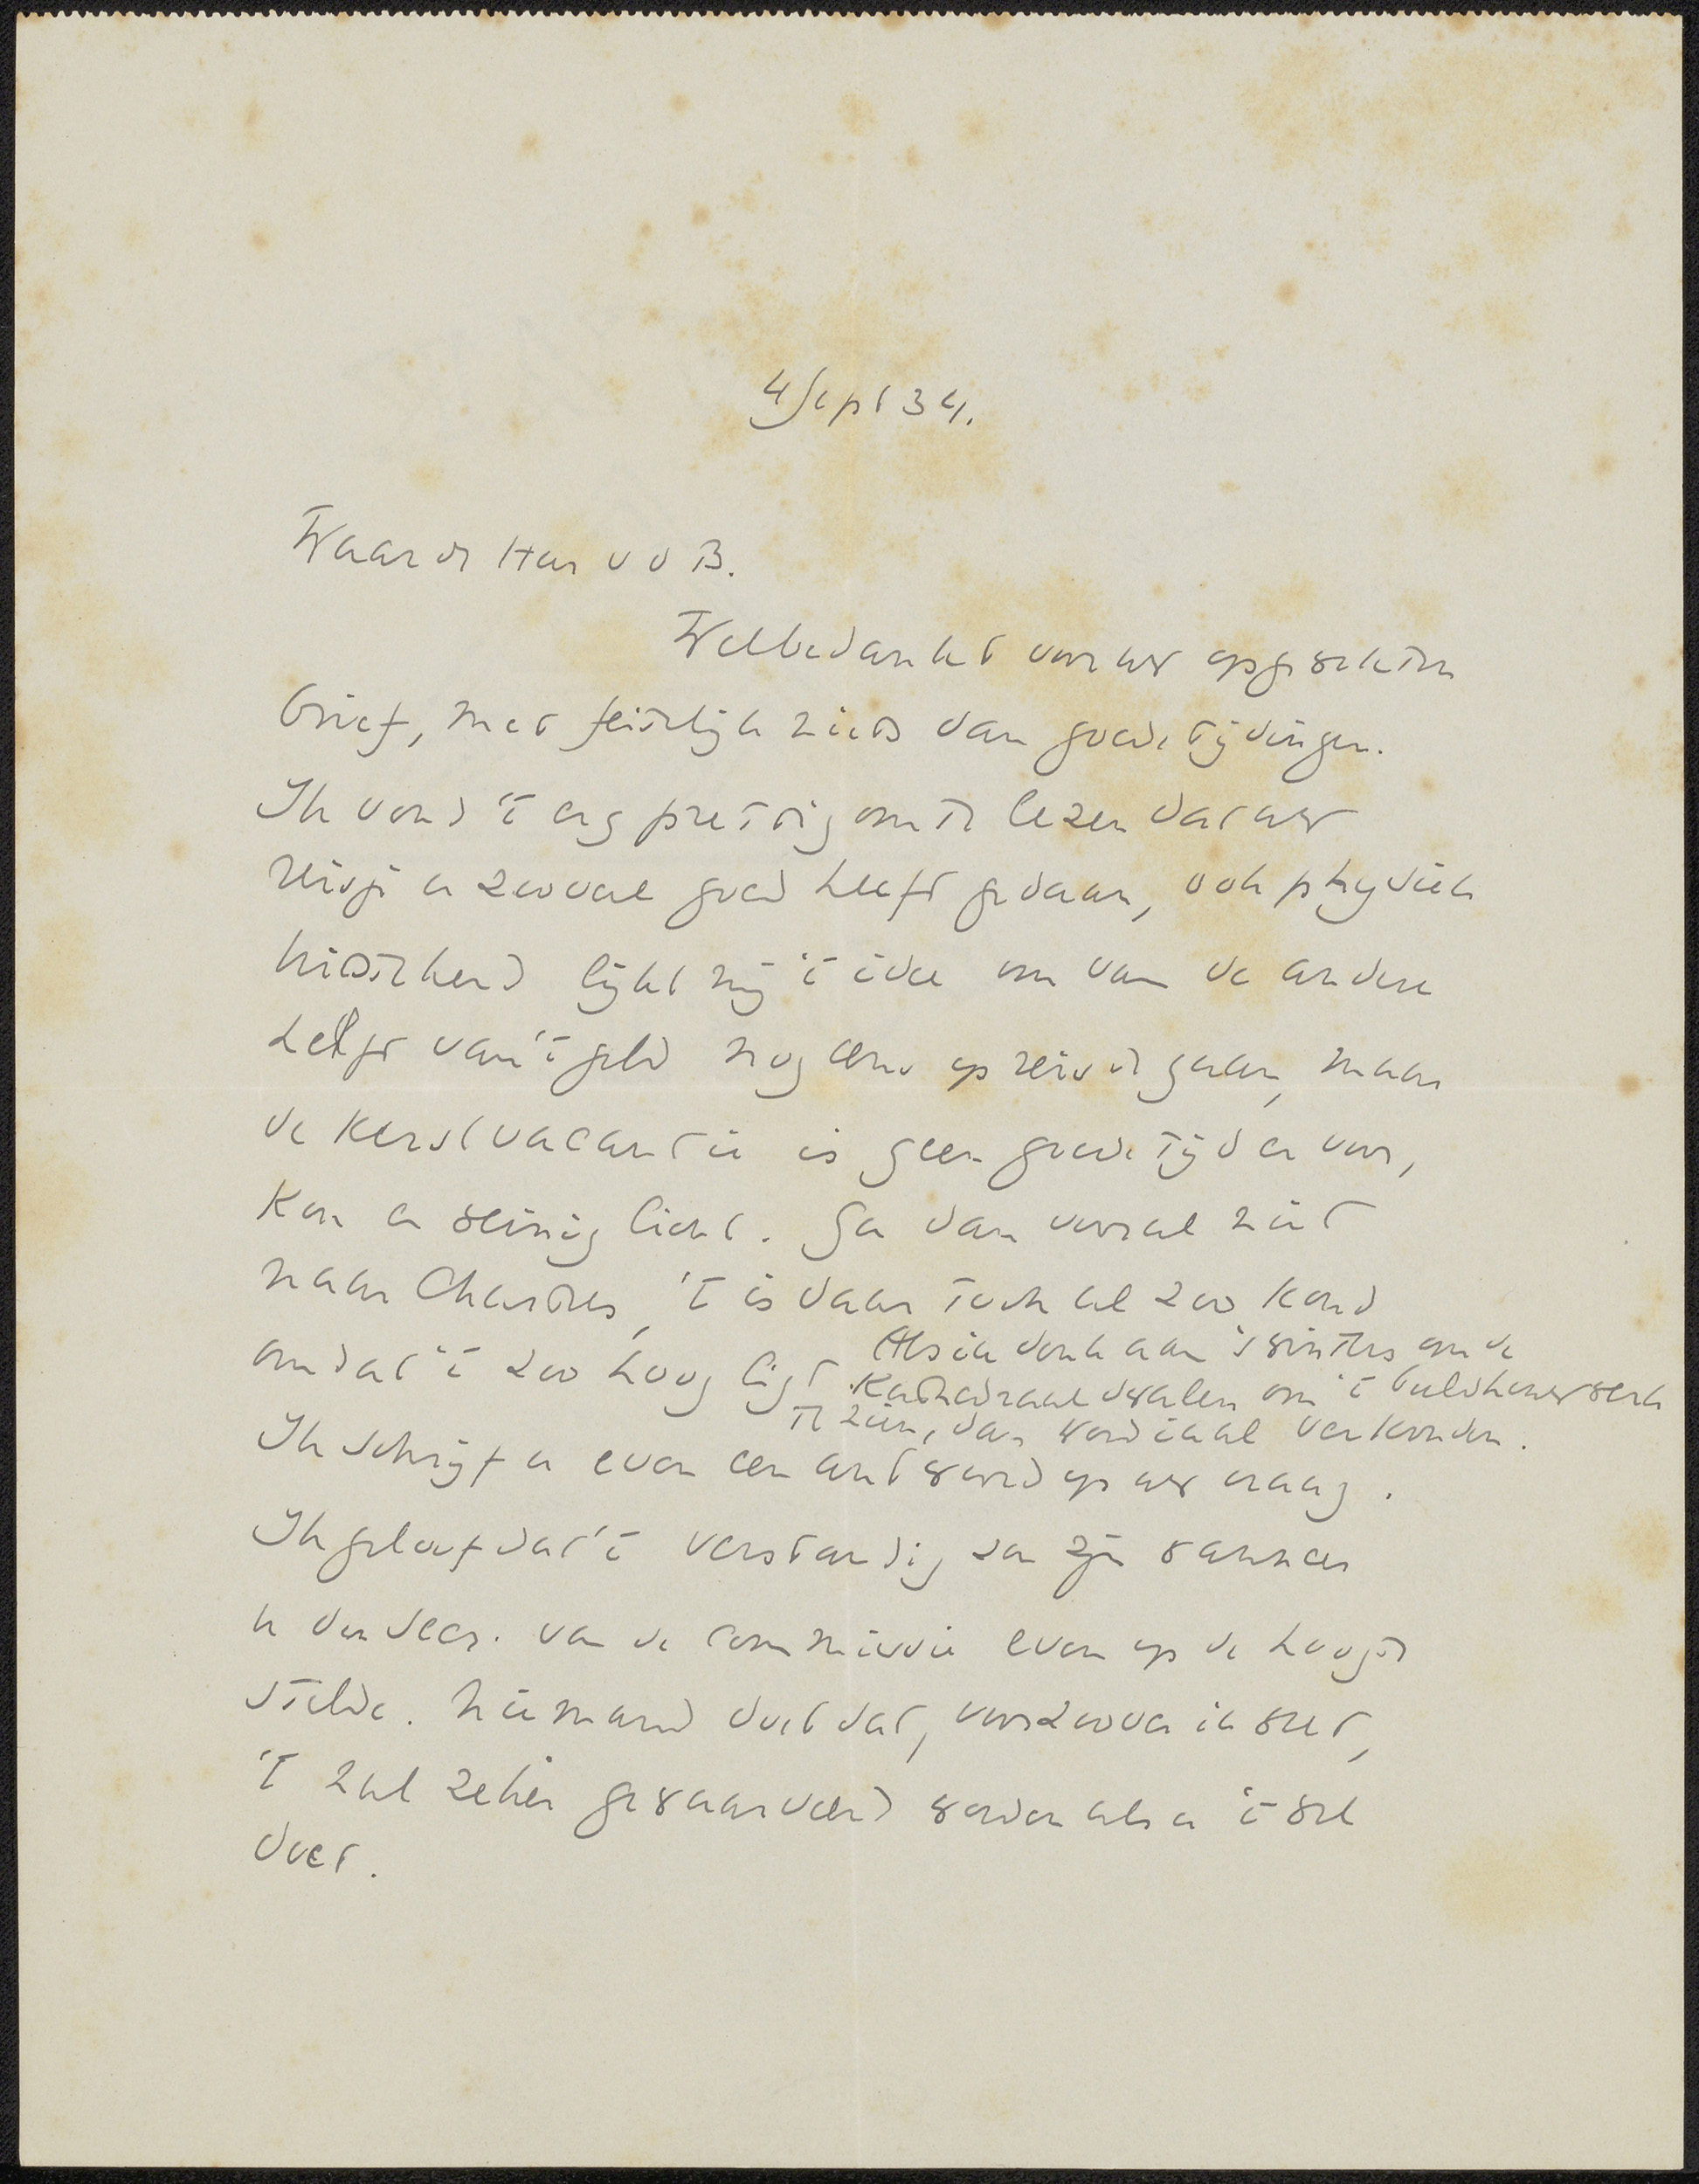 4 Sept 34.
Waarde Han v d B.
Welbedankt voor uw opgewekten
brief, met feitelijk niets dan goede tijdingen.
Ik vond 't erg prettig om te lezen dat uw
reisje u zooveel goed heeft gedaan, ook physiek
uitstekend lijkt mij 't idee om van de andere
helft van 't geld nog eens op reis te gaan, maar
de Kerstvacantie is geen goede tijd er voor,
Kou en weinig licht. Ga dan vooral niet
naar Chartres, 't is daar toch al zoo koud
omdat 't zoo hoog ligt. Als ik denk aan 's winters om de
Kathedraal dwalen om 't beeldhouwwerk
te zien, dan word ik al verkouden.
Ik schrijf u even een antwoord op uw vraag.
Ik geloof dat 't verstandig zou zijn wanneer
u den secr. van de commissie even op de hoogte
stelde. Niemand doet dat, voorzoover ik weet,
't zal zeker gewaardeerd worden als u 't wel
doet.